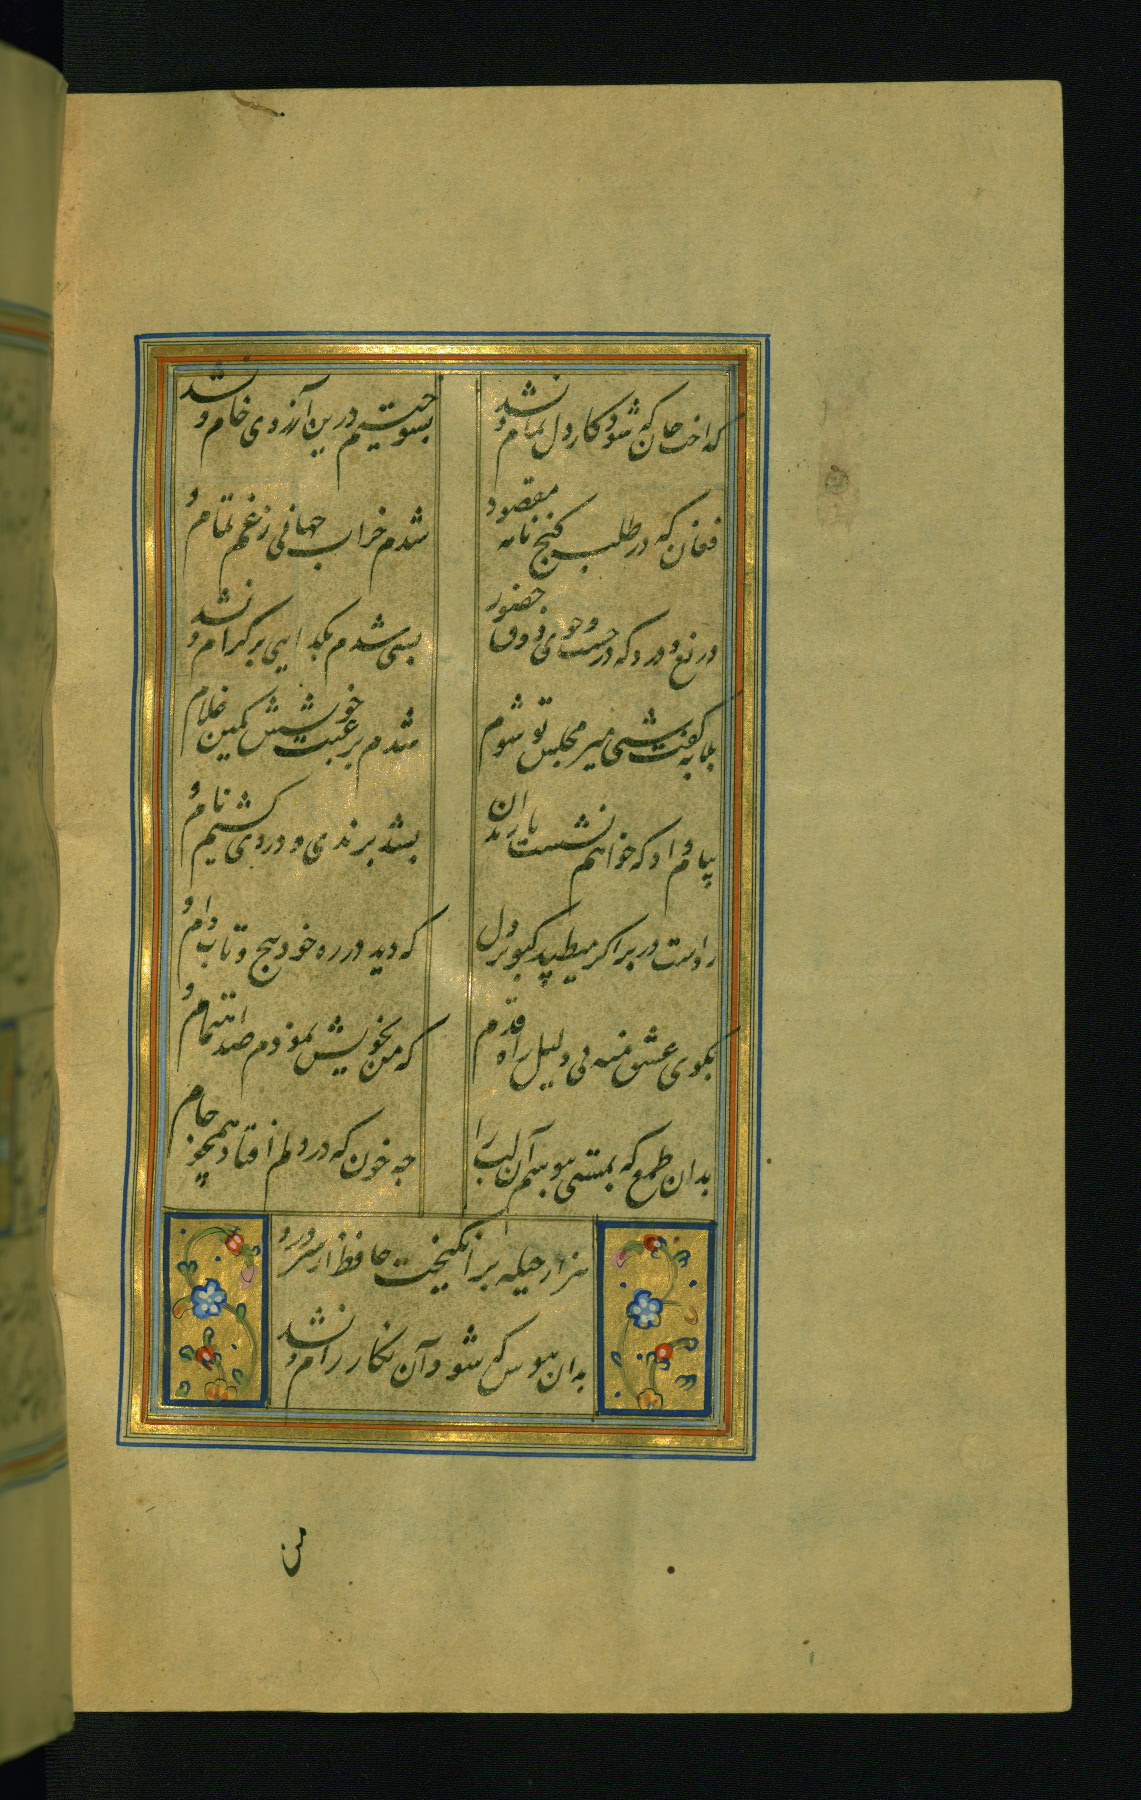 کداخت جان که شود کار دل تمام و نشد
بسوختیم درین آرزوی خام و نشد
فغان که در طلب کنج نامه مقصود
شدم خراب جهانی ز غم تمام و
دریغ و درد که در جست و جوی ذوق حضور
بسی شدم بکدایی بر کرام و نشد
بلابه کفت شبی میر مجلس تو شوم
شدم برغبت خویشش کمین غلام
پیام داد که خواهم نشست با رندان
بشد برندی و دردی کشیم نام و
رواست در بر اکر میطپد کبوتر دل
که دید در ره خود پیچ و تاب دام و
بکوی عشق منه بی دلیل راه قدم
که من بخویش نمودم صد اهتمام و
بدان طمع که بمستی ببوسم آن لب را
چه خون که در دلم افتاد همچو جام
هزار حیله بر انکیخت حافظ از سر
بدان هوس که شود آن نکار رام و نشد